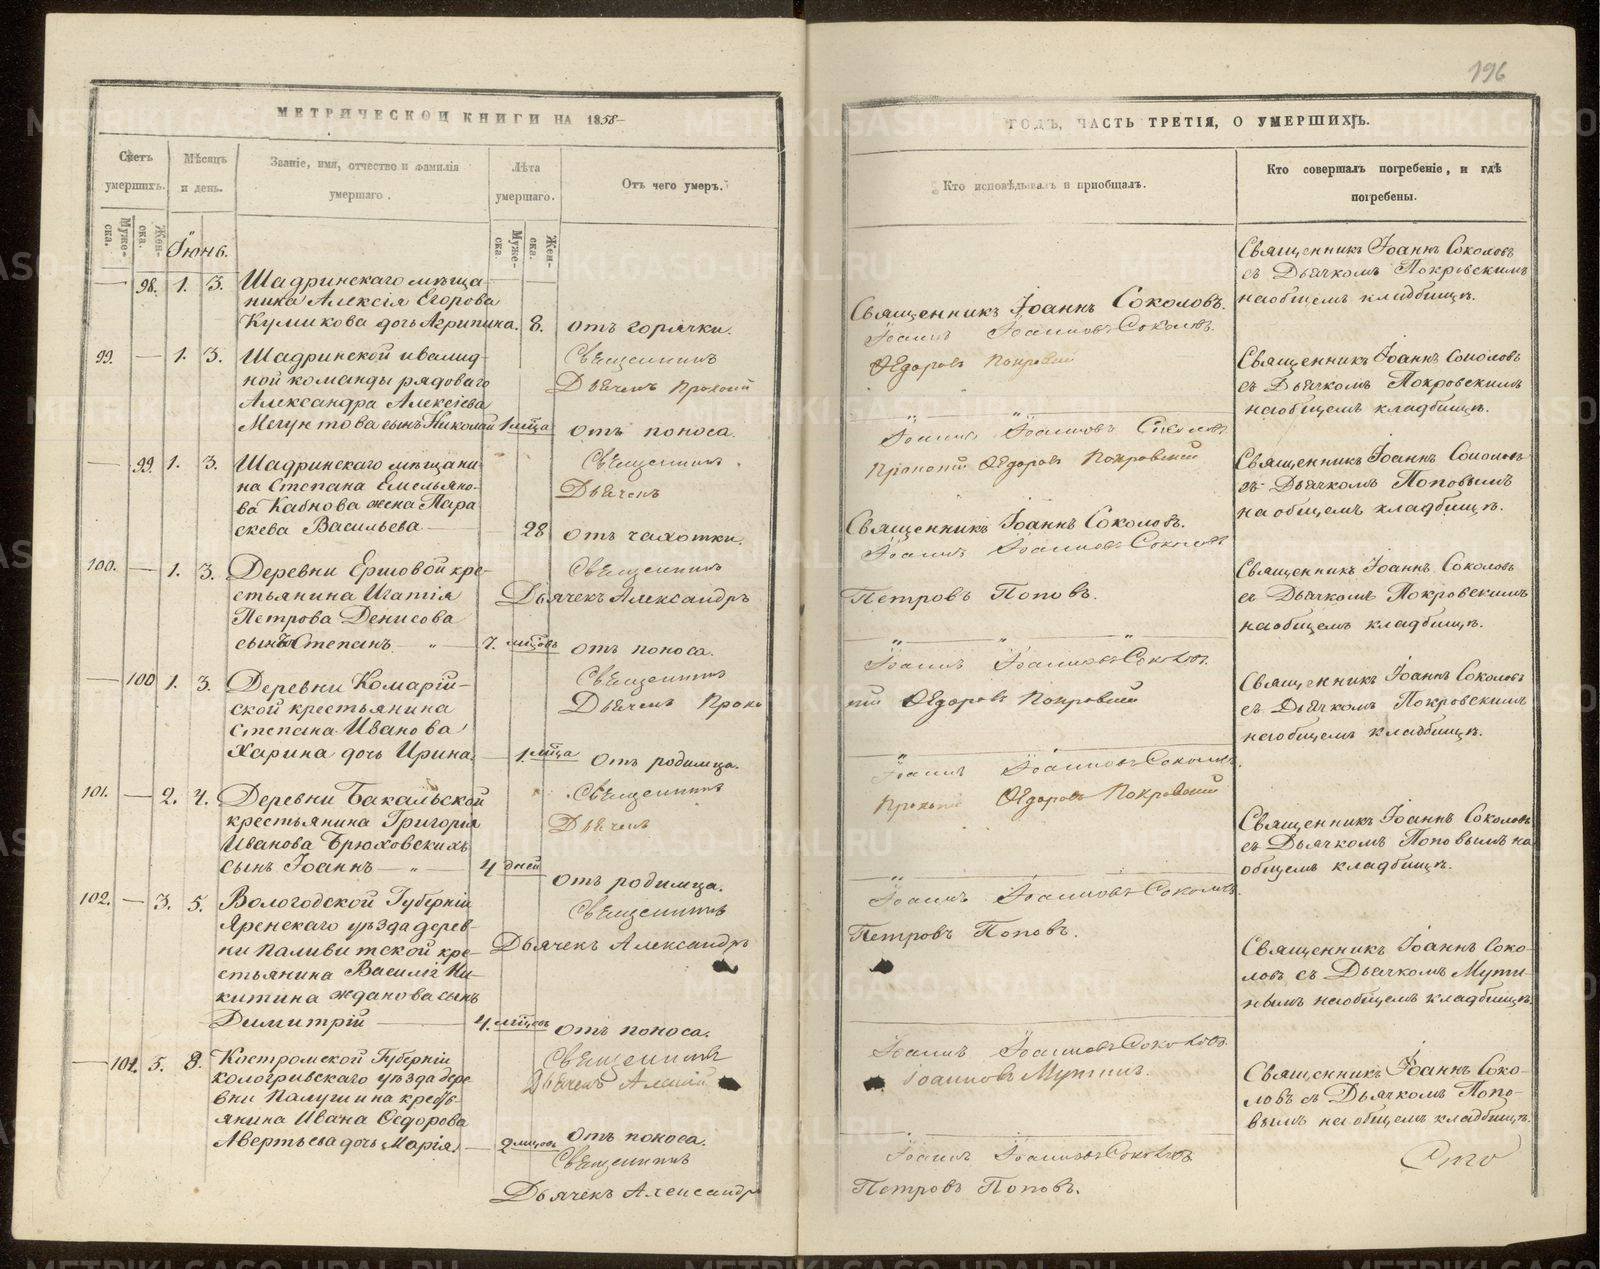 196
МЕТРИЧЕСКОЙ КНИГИ НА 1858
ГОДЪ, ЧАСТЬ ТРЕТІЯ, О УМЕРШИХЪ.
Счетъ умершихъ.
Муже-ска.
Жен-ска.
Мѣсяцъ и день.
Званіе, имя, отчество и фамилія умершаго.
Лѣта умершаго.
Муже-ска.
Жен-ска.
Отъ чего умеръ.
Кто исповѣдывалъ и пріобщалъ.
Кто совершалъ погребеніе, и гдѣ погребены.
Іюнь.
98. 1. 3. Шадринскаго мѣща-
ника Алексія Егорова
Куликова дочь Агрипина. 8. отъ горячки.
Священникъ Іоаннъ Соколовъ.
Священникъ Іоаннъ Соколовъ
съ Дьячкомъ Покровскимъ
на общемъ кладбищѣ.
Священникъ Іоаннъ Іоанновъ Соколовъ.
Дьячекъ Прокопій Ѳедоровъ Покровскій
99. 1. 3. Шадринской инвалид-
ной команды рядоваго
Александра Алексіева
сынъ Николай 1 мѣца отъ поноса.
Священникъ Іоаннъ Соколовъ
съ Дьячкомъ Покровскимъ
на общемъ кладбищѣ.
Священникъ Іоаннъ Іоанновъ Соколовъ
Дьячекъ Прокопій Ѳедоровъ Покровскій
99. 1. 3. Шадринскаго мѣщани-
на Степана Емельяно-
ва Кабнова жена Пара
скева Васильева 28 отъ чахотки.
Священникъ Іоаннъ Соколовъ.
Священникъ Іоаннъ Соколовъ
съ Дьячкомъ Поповымъ
на общемъ кладбищѣ.
Священникъ Іоаннъ Іоанновъ Соколовъ
Дьячекъ Александръ Петровъ Поповъ.
100. 1. 3. Деревни Ершовой кре-
стьянина Игнатія
Петрова Денисова
сынъ Степанъ " 7. мѣцовъ отъ поноса.
Священникъ Іоаннъ Соколовъ
съ Дьячкомъ Покровскимъ
на общемъ кладбищѣ.
Священникъ Іоаннъ Іоанновъ Соколовъ.
Дьячекъ Прокопій Ѳедоровъ Покровскій
100 1. 3. Деревни Комарій-
ской крестьянина
Степана Иванова
Харина дочь Ирина. 1. мѣца отъ родимца.
Священникъ Іоаннъ Соколовъ
съ Дьячкомъ Покровскимъ
на общемъ кладбищѣ.
Священникъ Іоаннъ Іоанновъ Соколовъ.
Дьячекъ Прокопій Ѳедоровъ Покровскій
101. 2. 4. Деревни Бакальской
крестьянина Григорія
Иванова Брюховскихъ
сынъ Іоаннъ " 4 дней отъ родимца.
Священникъ Іоаннъ Соколовъ
съ Дьячкомъ Поповымъ на
общемъ кладбищѣ.
Священникъ Іоаннъ Іоанновъ Соколовъ.
Дьячекъ Александръ Петровъ Поповъ.
102. 3. 5. Вологодской Губерніи
Яренскаго уѣзда дерев-
ни кре-
стьянина Василія Ни-
китина Жданова сынъ
Димитрій 4. мѣцовъ отъ поноса.
Священникъ Іоаннъ Соко-
ловъ съ Дьячкомъ Мути-
нымъ на общемъ кладбищѣ.
Священникъ Іоаннъ Іоанновъ Соколовъ.
Дьячекъ Алексій Іоанновъ Мутинъ.
101. 5. 8. Костромской Губерніи
кологривскаго уѣзда дере
вни кресть-
янина Ивана Ѳедорова
Авертьева дочь Марія. 2 мѣцовъ отъ поноса.
Священникъ Іоаннъ Соко-
ловъ съ Дьячкомъ Попо-
вымъ на общемъ кладбищѣ.
Священникъ Іоаннъ Іоанновъ Соколовъ
Дьячекъ Александръ Петровъ Поповъ.
METRIKI.GASO-URAL.RU